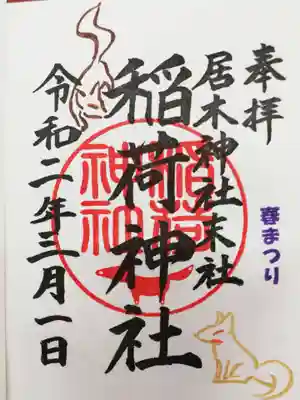 奉拝
居木神社末社
春まつり
稲荷神社
稲荷神社
令和二年三月一日